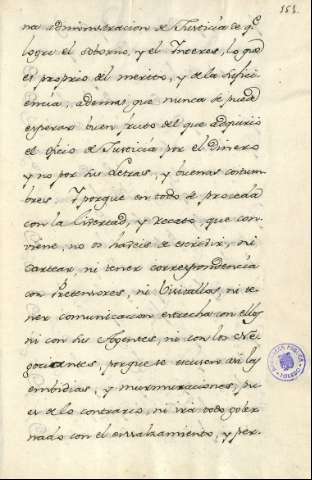 151.
na administracion de Justicia de qᵉ
logre el soborno, y el Interes, lo que
es proprio del merito, y de la sufici
encia, ademas que nunca se puede
esperar buen fruto del que adquirio
el oficio de Justicia por el dinero
y no por sus Letras, y buenas costum
bres. Y porque en todo se proceda
con la libertad, y recato, que con-
viene, no os habeis de escribir, ni
cartear, ni tener correspondencia
con Pretensores, ni Visitallos, ni te-
ner comunicacion estrecha con ellos
ni con sus Agentes, ni con los Ne-
gociantes, porque se escusen asi las
embidias, y murmuraciones, pu-
es de lo contrario, ni ira todo gober-
nado con el ensalzamiento, y per-
TOLEDO